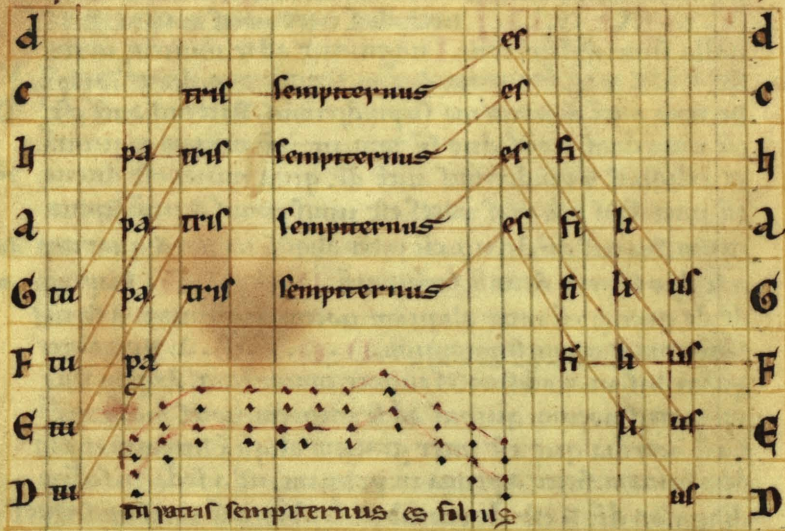 d es d
c tris sempiternus es c
h pa tris sempiternus es fi h
a pa tris sempiternus es fi li a
G tu pa tris sempiternus fi li us G
F tu pa fi li us F
E tu li us E
D tu us D
tu patris sempiternus es filius